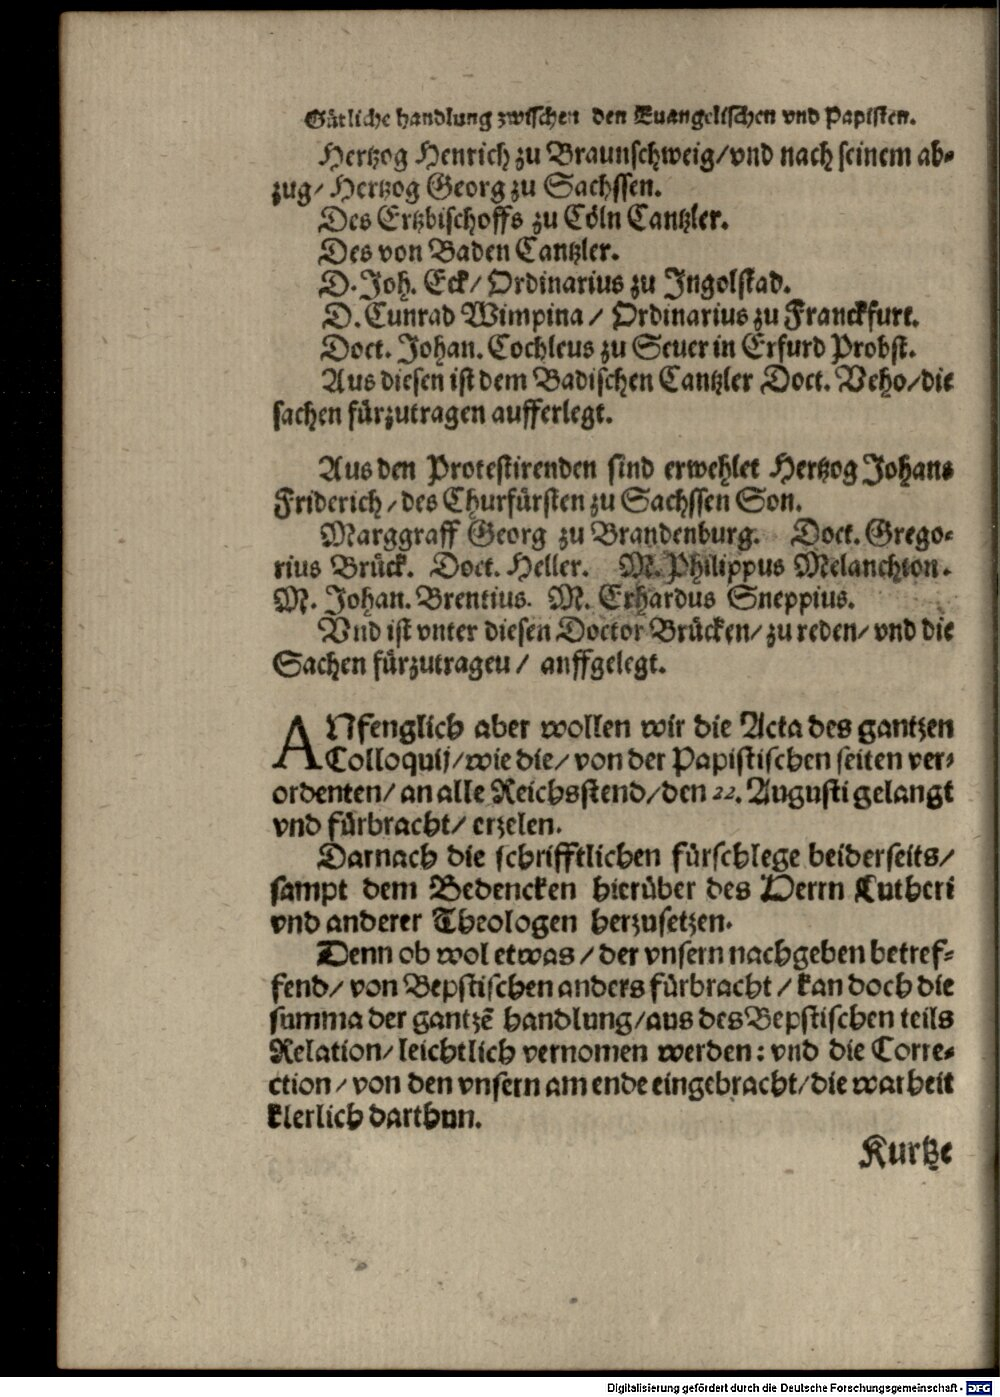 Gütliche handlung zwischen den Euangelischen vnd Papisten.
Hertzog Henrich zu Braunschweig/vnd nach seinem ab-
zug/ Hertzog Georg zu Sachssen.
Des Ertzbischoffs zu Cöln Cantzler.
Des von Baden Cantzler.
D. Joh. Eck/ Ordinarius zu Ingolstad.
D. Cunrad Wimpina / Ordinarius zu Franckfurt.
Doct. Johan. Cochleus zu Seuer in Erfurd Probst.
Aus diesen ist dem Badischen Cantzler Doct. Veho/die
sachen fürzutragen aufferlegt.
Aus den Protestirenden sind erwehlet Hertzog Johans
Friderich/des Churfürsten zu Sachssen Son.
Marggraff Georg zu Brandenburg. Doct. Grego-
rius Brück. Doct. Heller. M. Philippus Melanchton.
M. Johan. Brentius. M. Erhardus Sneppius.
Vnd ist vnter diesen Doctor Brücken/zu reden/vnd die
Sachen fürzutrageu / anffgelegt.
ANfenglich aber wollen wir die Acta des gantzen
Colloquij/wie die/von der Papistischen seiten ver-
ordenten/an alle Reichsstend/den 22. Augusti gelangt
vnd fürbracht/ erzelen.
Darnach die schrifftlichen fürschlege beiderseits/
sampt dem Bedencken hierüber des Herrn Lutheri
vnd anderer Theologen herzusetzen.
Denn ob wol etwas / der vnsern nachgeben betref-
fend/ von Bepstischen anders fürbracht / kan doch die
summa der gantzē handlung/aus des Bepstischen teils
Relation/leichtlich vernomen werden: vnd die Corre-
ction / von den vnsern am ende eingebracht/die warheit
klerlich darthun.
Kurtze
Digitalisierung gefördert durch die Deutsche Forschungsgemeinschaft - DFG